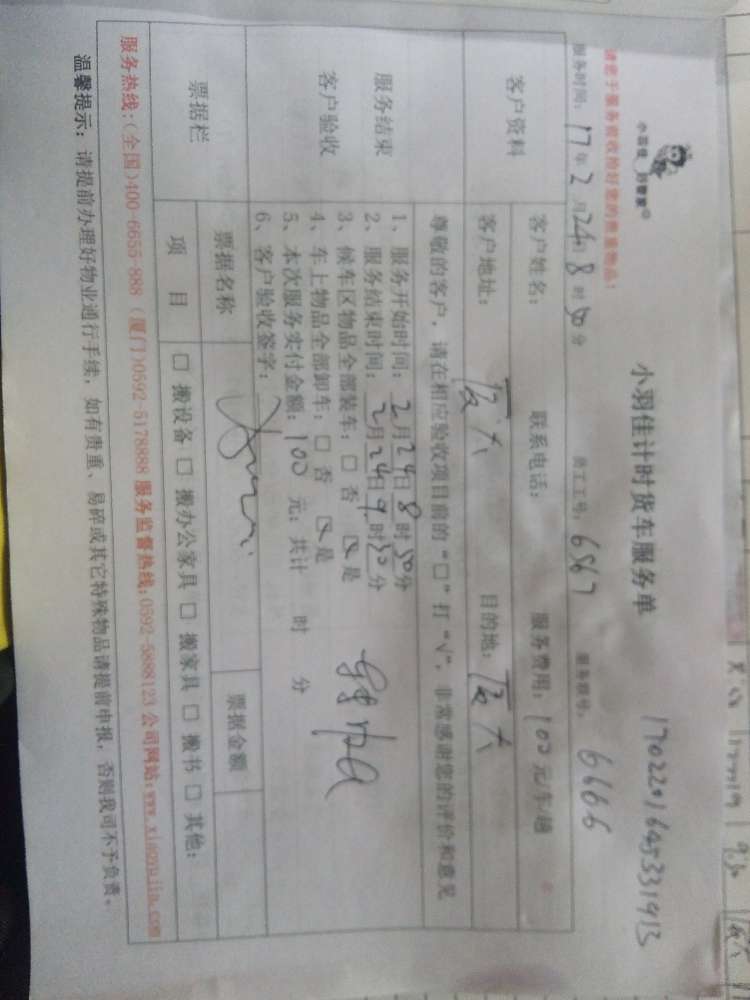 小羽佳 好管家®
小羽佳计时货车服务单
1702201645331913
请您于服务验收前将好您的贵重物品!
服务时间: 17年2月24日8时50分 员工工号: 6567 服务账号: 6666
客户资料
客户姓名: 联系电话: 服务费用: 100元/车/趟
客户地址: 厦大 目的地: 厦大
服务结束
客户验收
尊敬的客户,请在相应验收项目前的“□”打“√”,非常感谢您的评价和意见
1、服务开始时间: 2月24日8时50分
2、服务结束时间: 2月24日9时30分
3、候车区物品全部装车: □ 否 ☑ 是
4、车上物品全部卸车: □ 否 ☑ 是
5、本次服务实付金额: 100元; 共计 时 分
6、客户验收签字:
票据栏
票据名称 票据金额
项 目 □ 搬设备 □ 搬办公家具 □ 搬家具 □ 搬书 □ 其他:
服务热线:(全国)400-6655-888 (厦门)0592-5178888 服务监督热线:0592-5888123 公司网站:www.xiaoyujia.com
温馨提示: 请提前办理好物业通行手续, 如有贵重、易碎或其它特殊物品请提前申报, 否则我司不予负责。